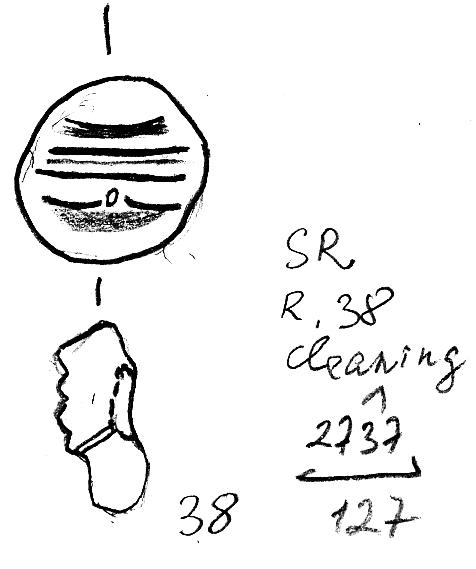 SR
R. 38
cleaning
2737
127
38